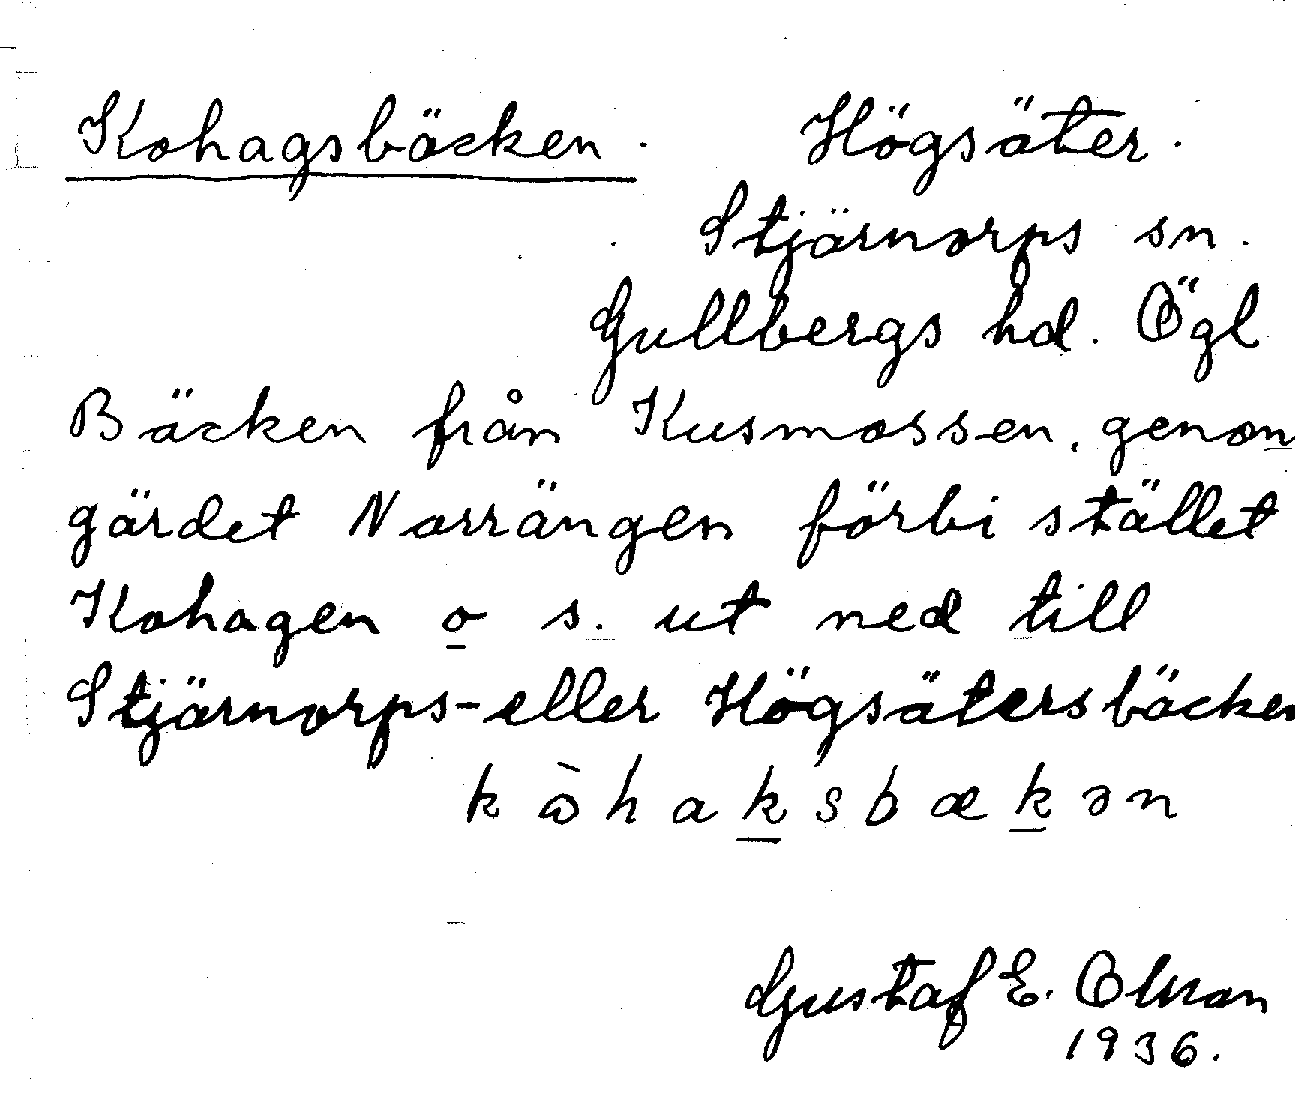 Kohagsbäcken. Högsäter.
Stjärnorps sn.
Gullbergs hd. Ögl
Bäcken från Kusmossen, genom
gärdet Norrängen förbi stället
Kohagen o s. ut ned till
Stjärnorps-eller Högsätersbäcken
kɷ̀haksbækən
Gustaf E. Olsson
1936.